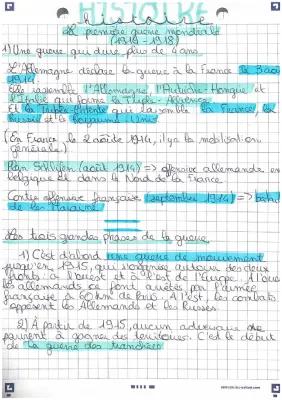 HISTOIRE
histoire
La première guerre mondiale
(1914 - 1918)
1) Une guerre qui dure plus de 4 ans
L'Allemagne déclare la guerre à la France le 3 août
1914.
Elle rassemble l'Allemagne, l'Autriche-Hongrie et
l'Italie qui forme la Triple-Alliance.
Et la Triple-Entente qui rassemble la France, la
Russie et le Royaume-Unis
(En France le 2 août 1914, il y a la mobilisation
générale)
Plan Schlieffen (août 1914) => offensive allemande en
Belgique et dans le Nord de la France.
Contre offensive française (septembre 1914) =>
de la Marne.
Les trois grandes phases de la guerre
1) C'est d'abord une guerre de mouvement
jusqu'en 1915, qui s'organise autour des deux
fronts : à l'ouest et à l'est de l'Europe. À l'ouest
les allemands se font arrêtés par l'armée
française à 60 km de Paris. À l'est, les combats
opposent les Allemands et les Russes.
2) À partir de 1915, aucun adversaire ne
parvient à gagner des territoires. C'est le début
de la guerre des tranchées